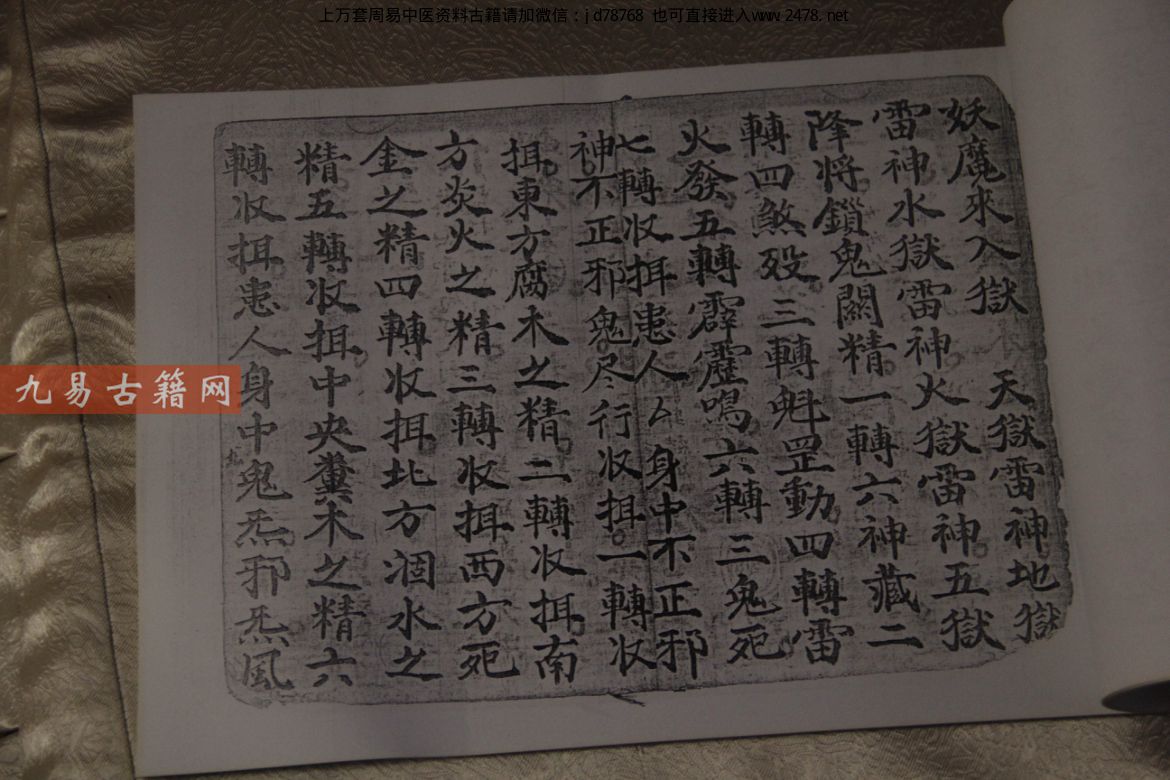 上万套周易中医资料古籍请加微信：jd78768 也可直接进入www.2478.net
妖魔來入獄 天獄雷神地獄
雷神水獄雷神火獄雷神五獄
降将鎖鬼關精一轉六神藏二
轉四煞殁三轉魁罡動四轉雷
火發五轉霹靂鳴六轉三鬼死
七轉收挕患人厶身中不正邪
神不正邪鬼尽行收挕一轉收
挕東方腐木之精二轉收挕南
方炎火之精三轉收挕西方死
金之精四轉收挕北方涸水之
精五轉收挕中央糞木之精六
轉收挕患人身中鬼炁邪炁風
九易古籍网